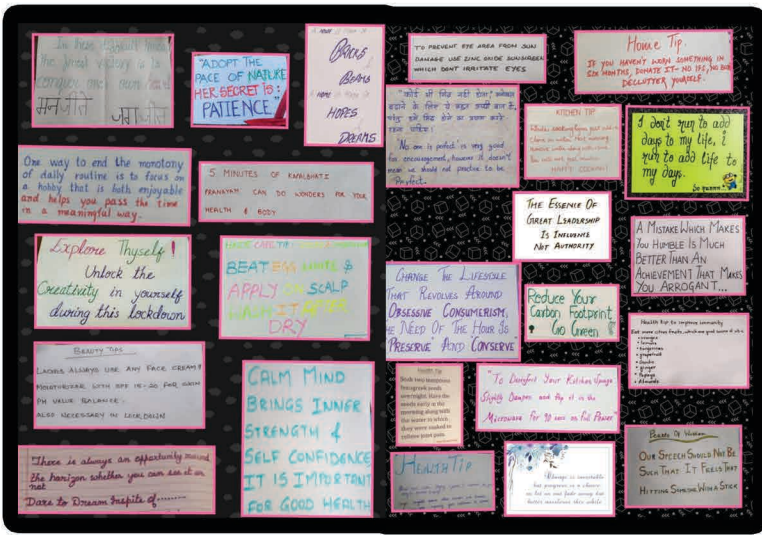 मन जीते जग जीत
"ADOPT THE
PACE OF NATURE
HER SECRET IS:
PATIENCE."
BRICKS
& BEAMS
HOPES
& DREAMS
One way to end the monotony
of daily routine is to focus on
a hobby that is both enjoyable
and helps you pass the time
in a meaningful way.
5 MINUTES OF KAPALBHATI
PRANAYAM CAN DO WONDERS FOR YOUR
HEALTH & BODY
Explore Thyself!
Unlock the
Creativity in yourself
during this lockdown
BEAT EGG WHITE &
APPLY ON SCALP
WASH IT AFTER
DRY
BEAUTY TIPS
LADIES ALWAYS USE ANY FACE CREAM/
MOISTURIZER WITH SPF 15-20 FOR SKIN
PH VALUE BALANCE.
ALSO NECESSARY IN LOCKDOWN
CALM MIND
BRINGS INNER
STRENGTH &
SELF CONFIDENCE
IT IS IMPORTANT
FOR GOOD HEALTH
There is always an opportunity around
the horizon whether you can see it or
not
Dare to Dream Inspite of.........
TO PREVENT EYE AREA FROM SUN
DAMAGE USE ZINC OXIDE SUNSCREEN
WHICH DONT IRRITATE EYES
Home Tip
IF YOU HAVEN'T WORN SOMETHING IN
SIX MONTHS, DONATE IT- NO IFS, NO BUTS
DECLUTTER YOURSELF.
"No one is perfect" is very good
for encouragement, however it doesn't
mean we should not practice to be
Perfect.
KITCHEN TIP
HAPPY COOKING
I don't run to add
days to my life, i
run to add life to
my days.
So runnn!!
THE ESSENCE OF
GREAT LEADERSHIP
IS INFLUENCE
NOT AUTHORITY
A MISTAKE WHICH MAKES
YOU HUMBLE IS MUCH
BETTER THAN AN
ACHIEVEMENT THAT MAKES
YOU ARROGANT...
CHANGE THE LIFESTYLE
THAT REVOLVES AROUND
OBSESSIVE CONSUMERISM,
THE NEED OF THE HOUR IS
'PRESERVE' AND 'CONSERVE'
Reduce Your
Carbon Footprint
Go Green
Health tip to improve immunity
Eat more citrus fruits, which are good source of vit c
• oranges
• lemons
• tangerines
• grapefruit
• ginger
• Papaya
• Almonds
Health Tip
Soak two teaspoons
fenugreek seeds
overnight. Have the
seeds early in the
morning along with
the water in which
they were soaked to
relieve joint pain
"To Disinfect Your Kitchen Sponge
Slightly Dampen and Pop it in the
Microwave For 90 secs on full Power"
HEALTH TIP
Change is inevitable
but progress is a choice
so let us not fade away but
better ourselves this while
Pearls Of Wisdom
OUR SPEECH SHOULD NOT BE
SUCH THAT IT FEELS THAT
HITTING SOMEONE WITH A STICK